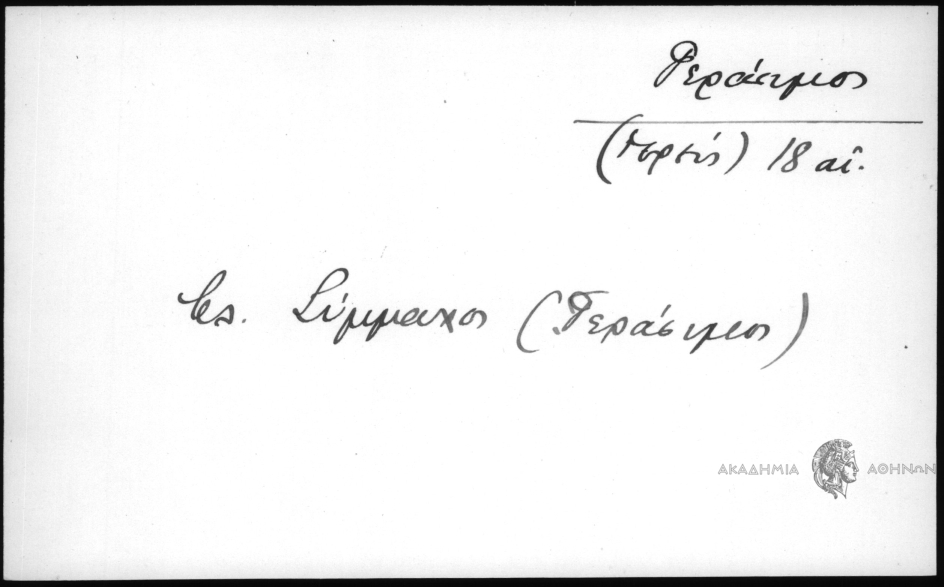 Γεράσιμος
18 αἰ.
Σύμμαχος (Γεράσιμος)
ΑΚΑΔΗΜΙΑ ΑΘΗΝΩΝ